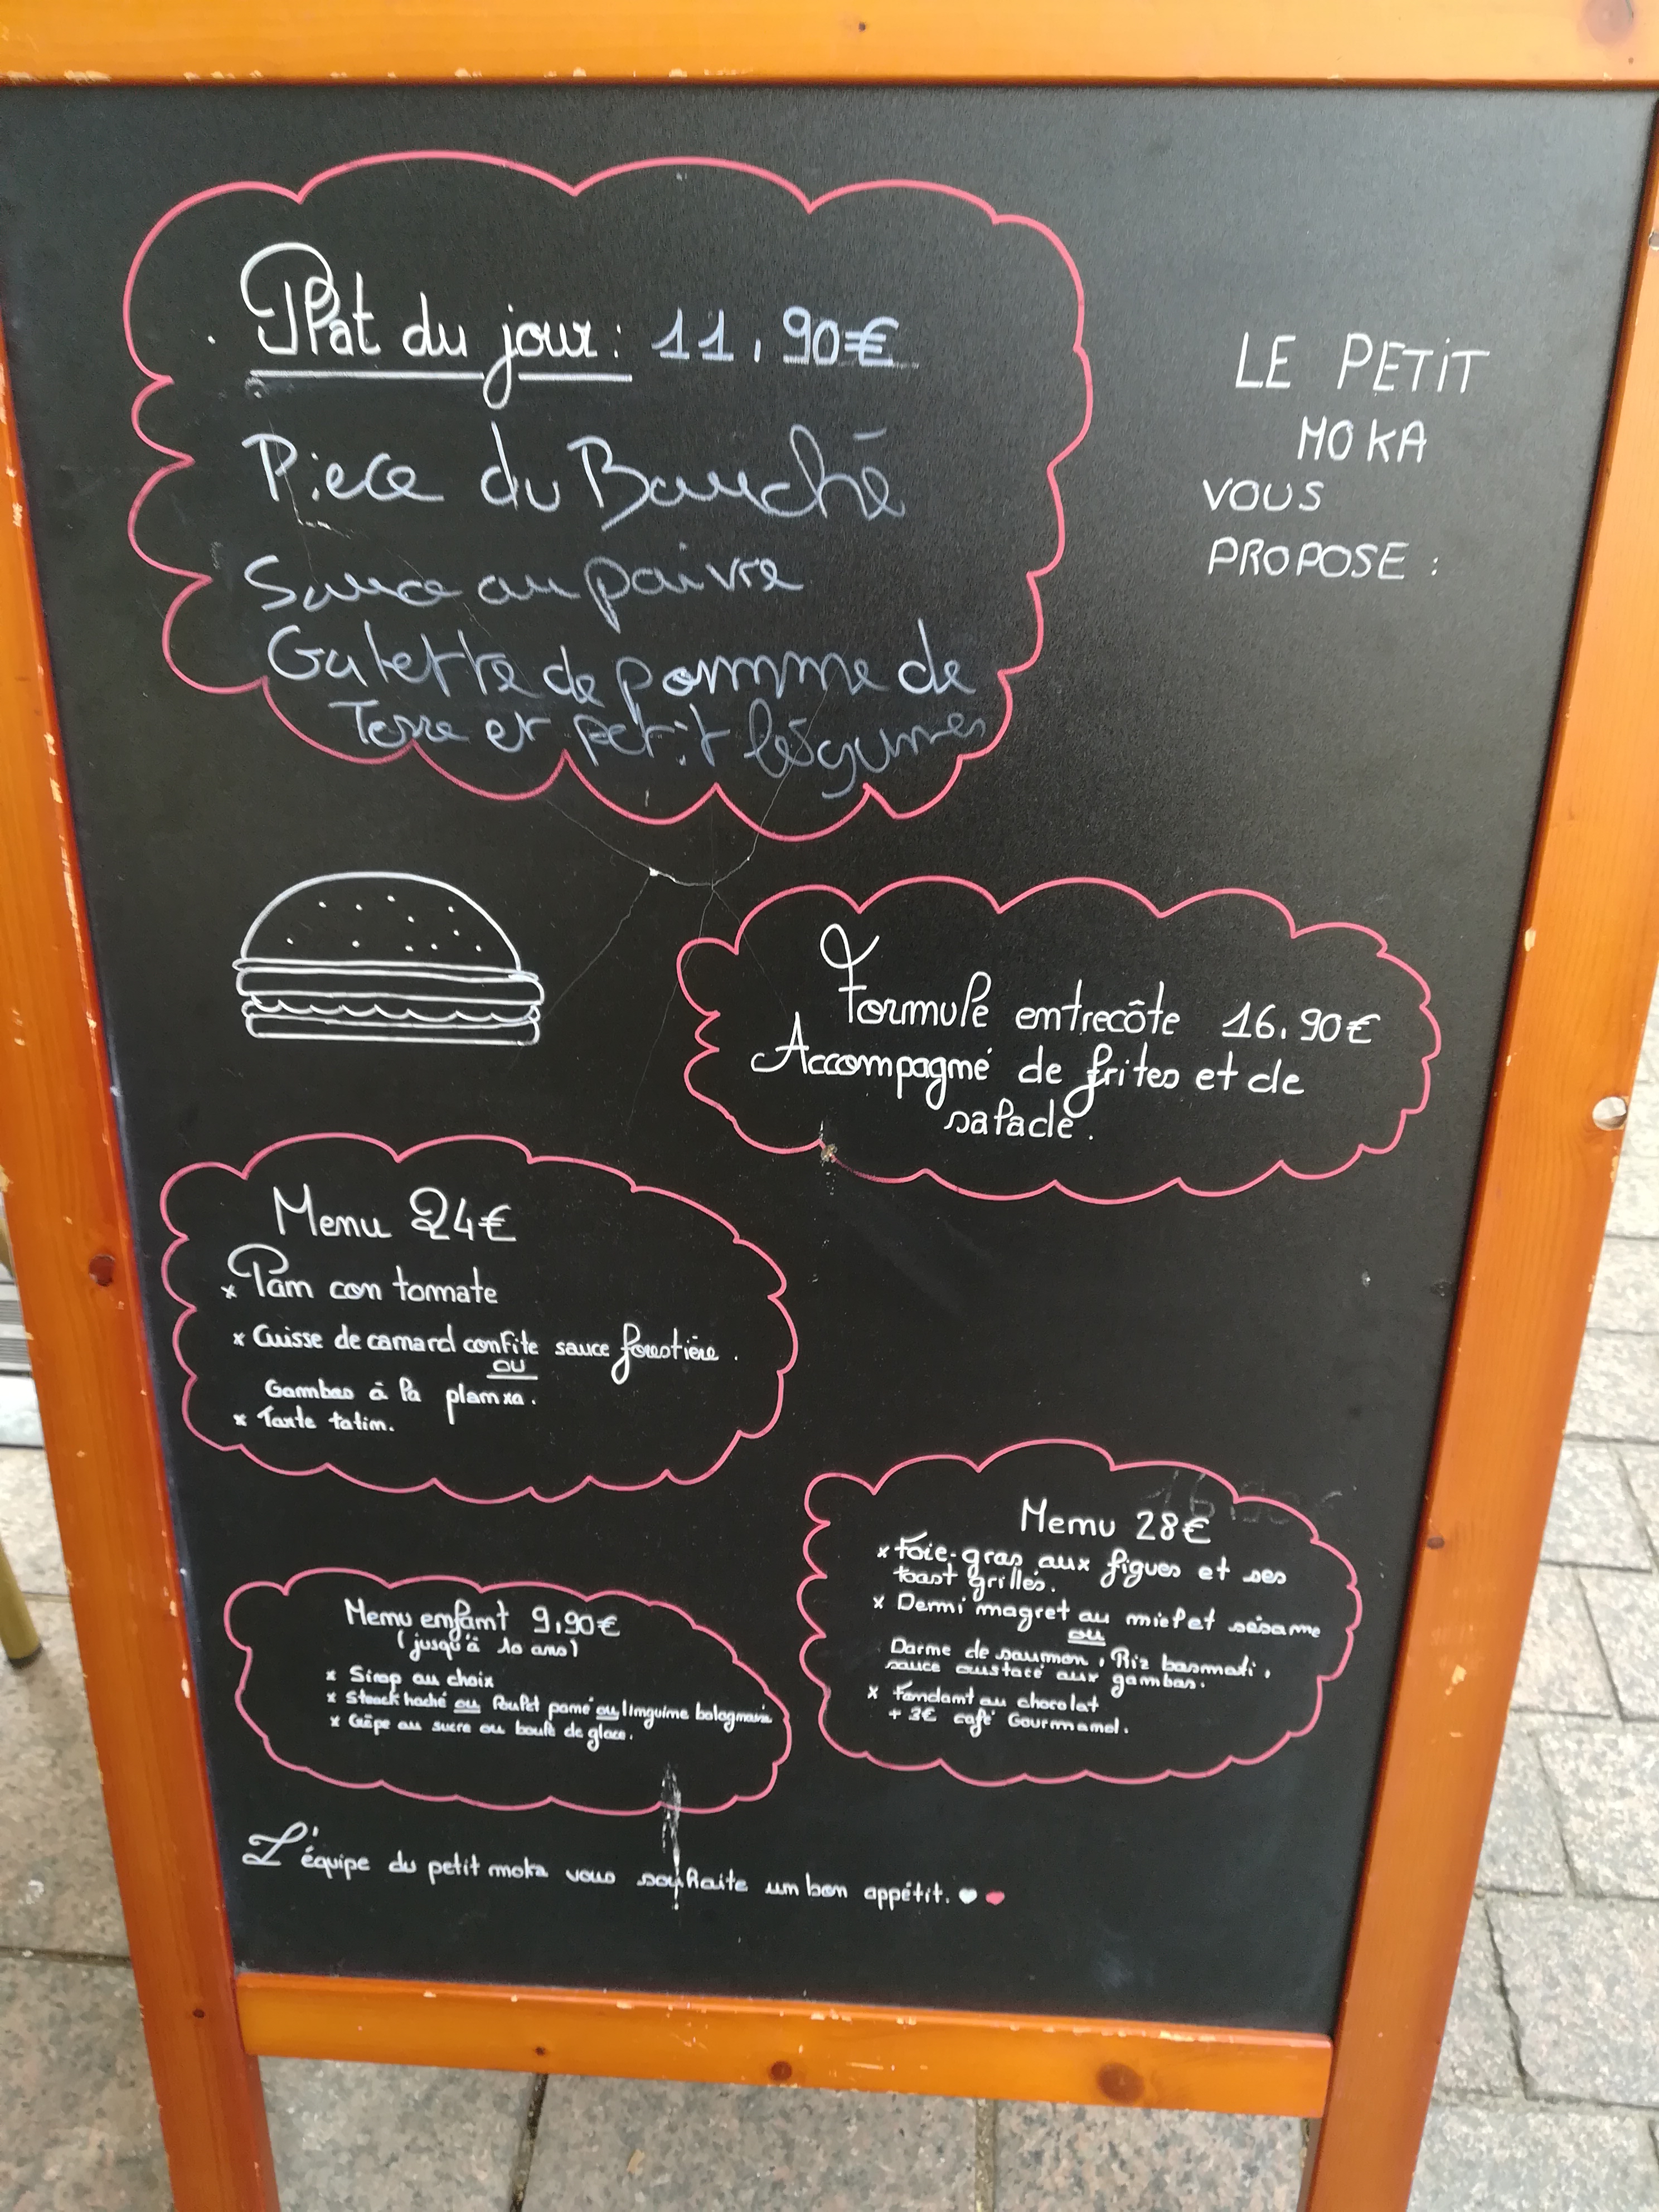 Plat du jour : 11,90€
Piece du Bouché
Sauce au poivre
Galette de pomme de
Terre et petit légumes
LE PETIT
MOKA
VOUS
PROPOSE :
Formule entrecôte 16.90€
Accompagné de frites et de
salade.
Menu 24€
x Pan con tomate
x Cuisse de canard confite sauce forestière.
ou
Gambas à la planxa.
x Tarte tatin.
Menu 28€
x Foie-gras aux figues et ses
toast grillés.
x Demi magret au miel et sésame
ou
Darme de saumon, Riz basmati,
sauce custacé aux gambas.
x Fondant au chocolat
+ 3€ café Gourmand.
Menu enfant 9,90€
(jusqu'à 10 ans)
x Sirop au choix
x Steack haché ou Poulet pané ou linguine bolognaise
x Crêpe au sucre ou boule de glace.
L'équipe du petit moka vous souhaite un bon appétit.